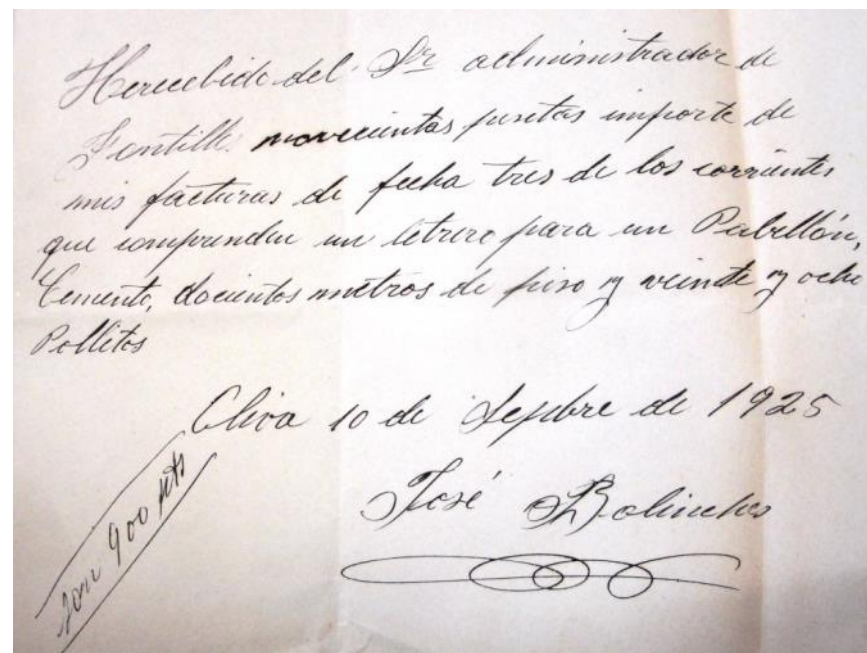 He recibido del Sr administrador de
Fontilles novecientas pesetas importe de
mis facturas de fecha tres de los corrientes
que comprenden un letrero para un Pabellón,
Cemento, docientos metros de piso y veinte y ocho
Pollitos
Oliva 10 de Sepbre de 1925
José Bolinches
Son 900 pts